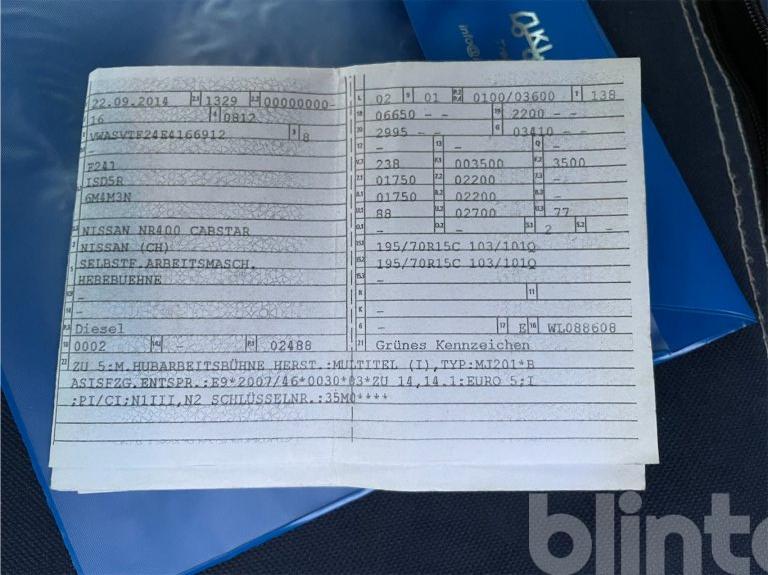 22.09.2014 2.1 1329 2.2 00000000-
16 4 0812
VWASVTF24E4166912 3 8
F24I
ISD5R
6M4M3N
NISSAN NR400 CABSTAR
NISSAN (CH)
SELBSTF.ARBEITSMASCH.
HEBEBUEHNE
-
-
Diesel
10 0002 14.1 - P.1 02488
L 02 9 01 P.2 P.4 0100/03600 T 138
18 06650 - - 19 2200 - -
20 2995 - - G 03410 - -
12 - 13 - Q -
V.7 238 F.1 003500 F.2 3500
7.1 01750 7.2 02200 7.3 -
8.1 01750 8.2 02200 8.3 -
U.1 88 U.2 02700 U.3 77
O.1 - O.2 - S.1 2 S.2 -
15.1 195/70R15C 103/101Q
15.2 195/70R15C 103/101Q
15.3 -
R - 11
K -
6 - 17 E 16 WL088608
21 Grünes Kennzeichen
22 ZU 5:M.HUBARBEITSBÜHNE HERST.:MULTITEL (I),TYP:MJ201*B
ASISFZG.ENTSPR.:E9*2007/46*0030*03*ZU 14,14.1:EURO 5;I
;PI/CI;N1III,N2 SCHLÜSSELNR.:35M0****
blinto